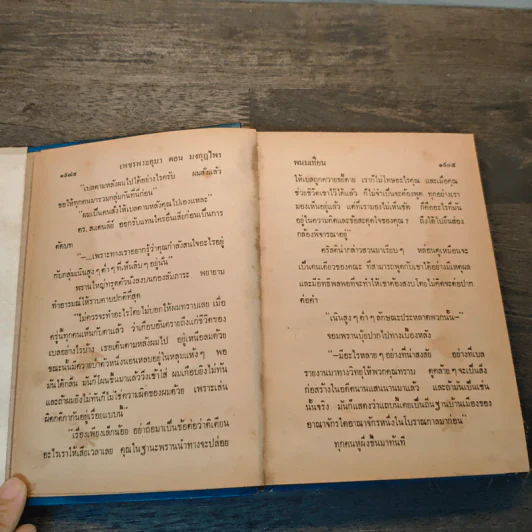 ๑๔๘๔
เพชรพระอุมา ตอน มงกุฎไพร
"เบลตามหลังผมไปได้อย่างไรครับ ผมสั่งแล้ว
ขอให้ทุกคนมารวมกลุ่มกันที่นี่ก่อน"
"ผมเป็นคนสั่งให้เบลตามหลังคุณไปเองแหละ"
ดร. สแตนลีย์ ออกรับแทนใครอื่นเสียก่อนเป็นการ
ตัดบท
"–เพราะทางเราอยากรู้ว่าคุณกำลังสนใจอะไรอยู่
กับกลุ่มเนินสูง ๆ ต่ำ ๆ ที่เห็นลิบ ๆ อยู่นั้น"
พรานใหญ่ทรุดตัวนั่งลงบนกองสัมภาระ พยายาม
ทำอารมณ์ให้ราบคาบปกติที่สุด
"ไม่ควรจะทำอะไรโดยไม่บอกให้ผมทราบเลย เมื่อ
ครู่นี้ทุกคนเห็นกับตาแล้ว ว่าเกือบอันตรายถึงแก่ชีวิตของ
เบลอย่างไรบ้าง เธอเดินตามหลังผมไป อยู่เหนือลมด้วย
ขณะนั้นมีควายป่าตัวหนึ่งนอนหลบอยู่ในหลุมแห้ง ๆ พอ
มันได้กลิ่น มันก็โผนขึ้นมาแล้ววิ่งเข้าใส่ ผมเกือบยิงไม่ทัน
และถ้าผมยิงไม่ทันก็ไม่ใช่ความผิดของผมด้วย เพราะเล่น
ผิดกติกากันอยู่เรื่อยแบบนี้"
"เรื่องเพียงเล็กน้อย อย่าถือมาเป็นข้อต่อว่าตำเตียน
อะไรเราให้เสียเวลาเลย คุณในฐานะพรานนำทางจะปล่อย
พนมเทียน
๑๔๘๕
ให้เบลถูกควายขวิดตาย เราก็ไม่โทษอะไรคุณ และเมื่อคุณ
ช่วยชีวิตเขาไว้ได้แล้ว ก็ไม่จำเป็นจะต้องพูด ทุกอย่างเรา
มองเห็นอยู่แล้ว แต่ที่เรามองไม่เห็นชัด ก็คืออะไรที่มัน
อยู่ในความคิดและข้อสะดุดใจของคุณ ? ถึงได้ไปยืนส่อง
กล้องพิจารณาอยู่"
คริสติน่ากล่าวสวนมาเรียบ ๆ หล่อนดูเหมือนจะ
เป็นคนเดียวของคณะ ที่สามารถพูดกับเขาได้อย่างมีเหตุผล
และมีอิทธิพลพอที่จะทำให้เขาต้องสงบได้โดยไม่คิดจะต่อปาก
ต่อคำ
"เนินสูง ๆ ต่ำ ๆ ลักษณะประหลาดพวกนั้น–"
จอมพรานบุ้ยปากไปทางเบื้องหลัง
"–มีอะไรหลาย ๆ อย่างที่น่าสงสัย อย่างที่เบล
รายงานมาทางวิทยุให้พวกคุณทราบ ดูคล้าย ๆ จะเป็นสิ่ง
ก่อสร้างในอดีตนานแสนนานมาแล้ว และถ้ามันเป็นเช่น
นั้นจริง มันก็แสดงว่าแถบนี้เคยเป็นถิ่นฐานบ้านเมืองของ
อาณาจักรใดอาณาจักรหนึ่งในโบราณกาลมาก่อน"
ทุกคนหูผึ่งขึ้นมาทันที